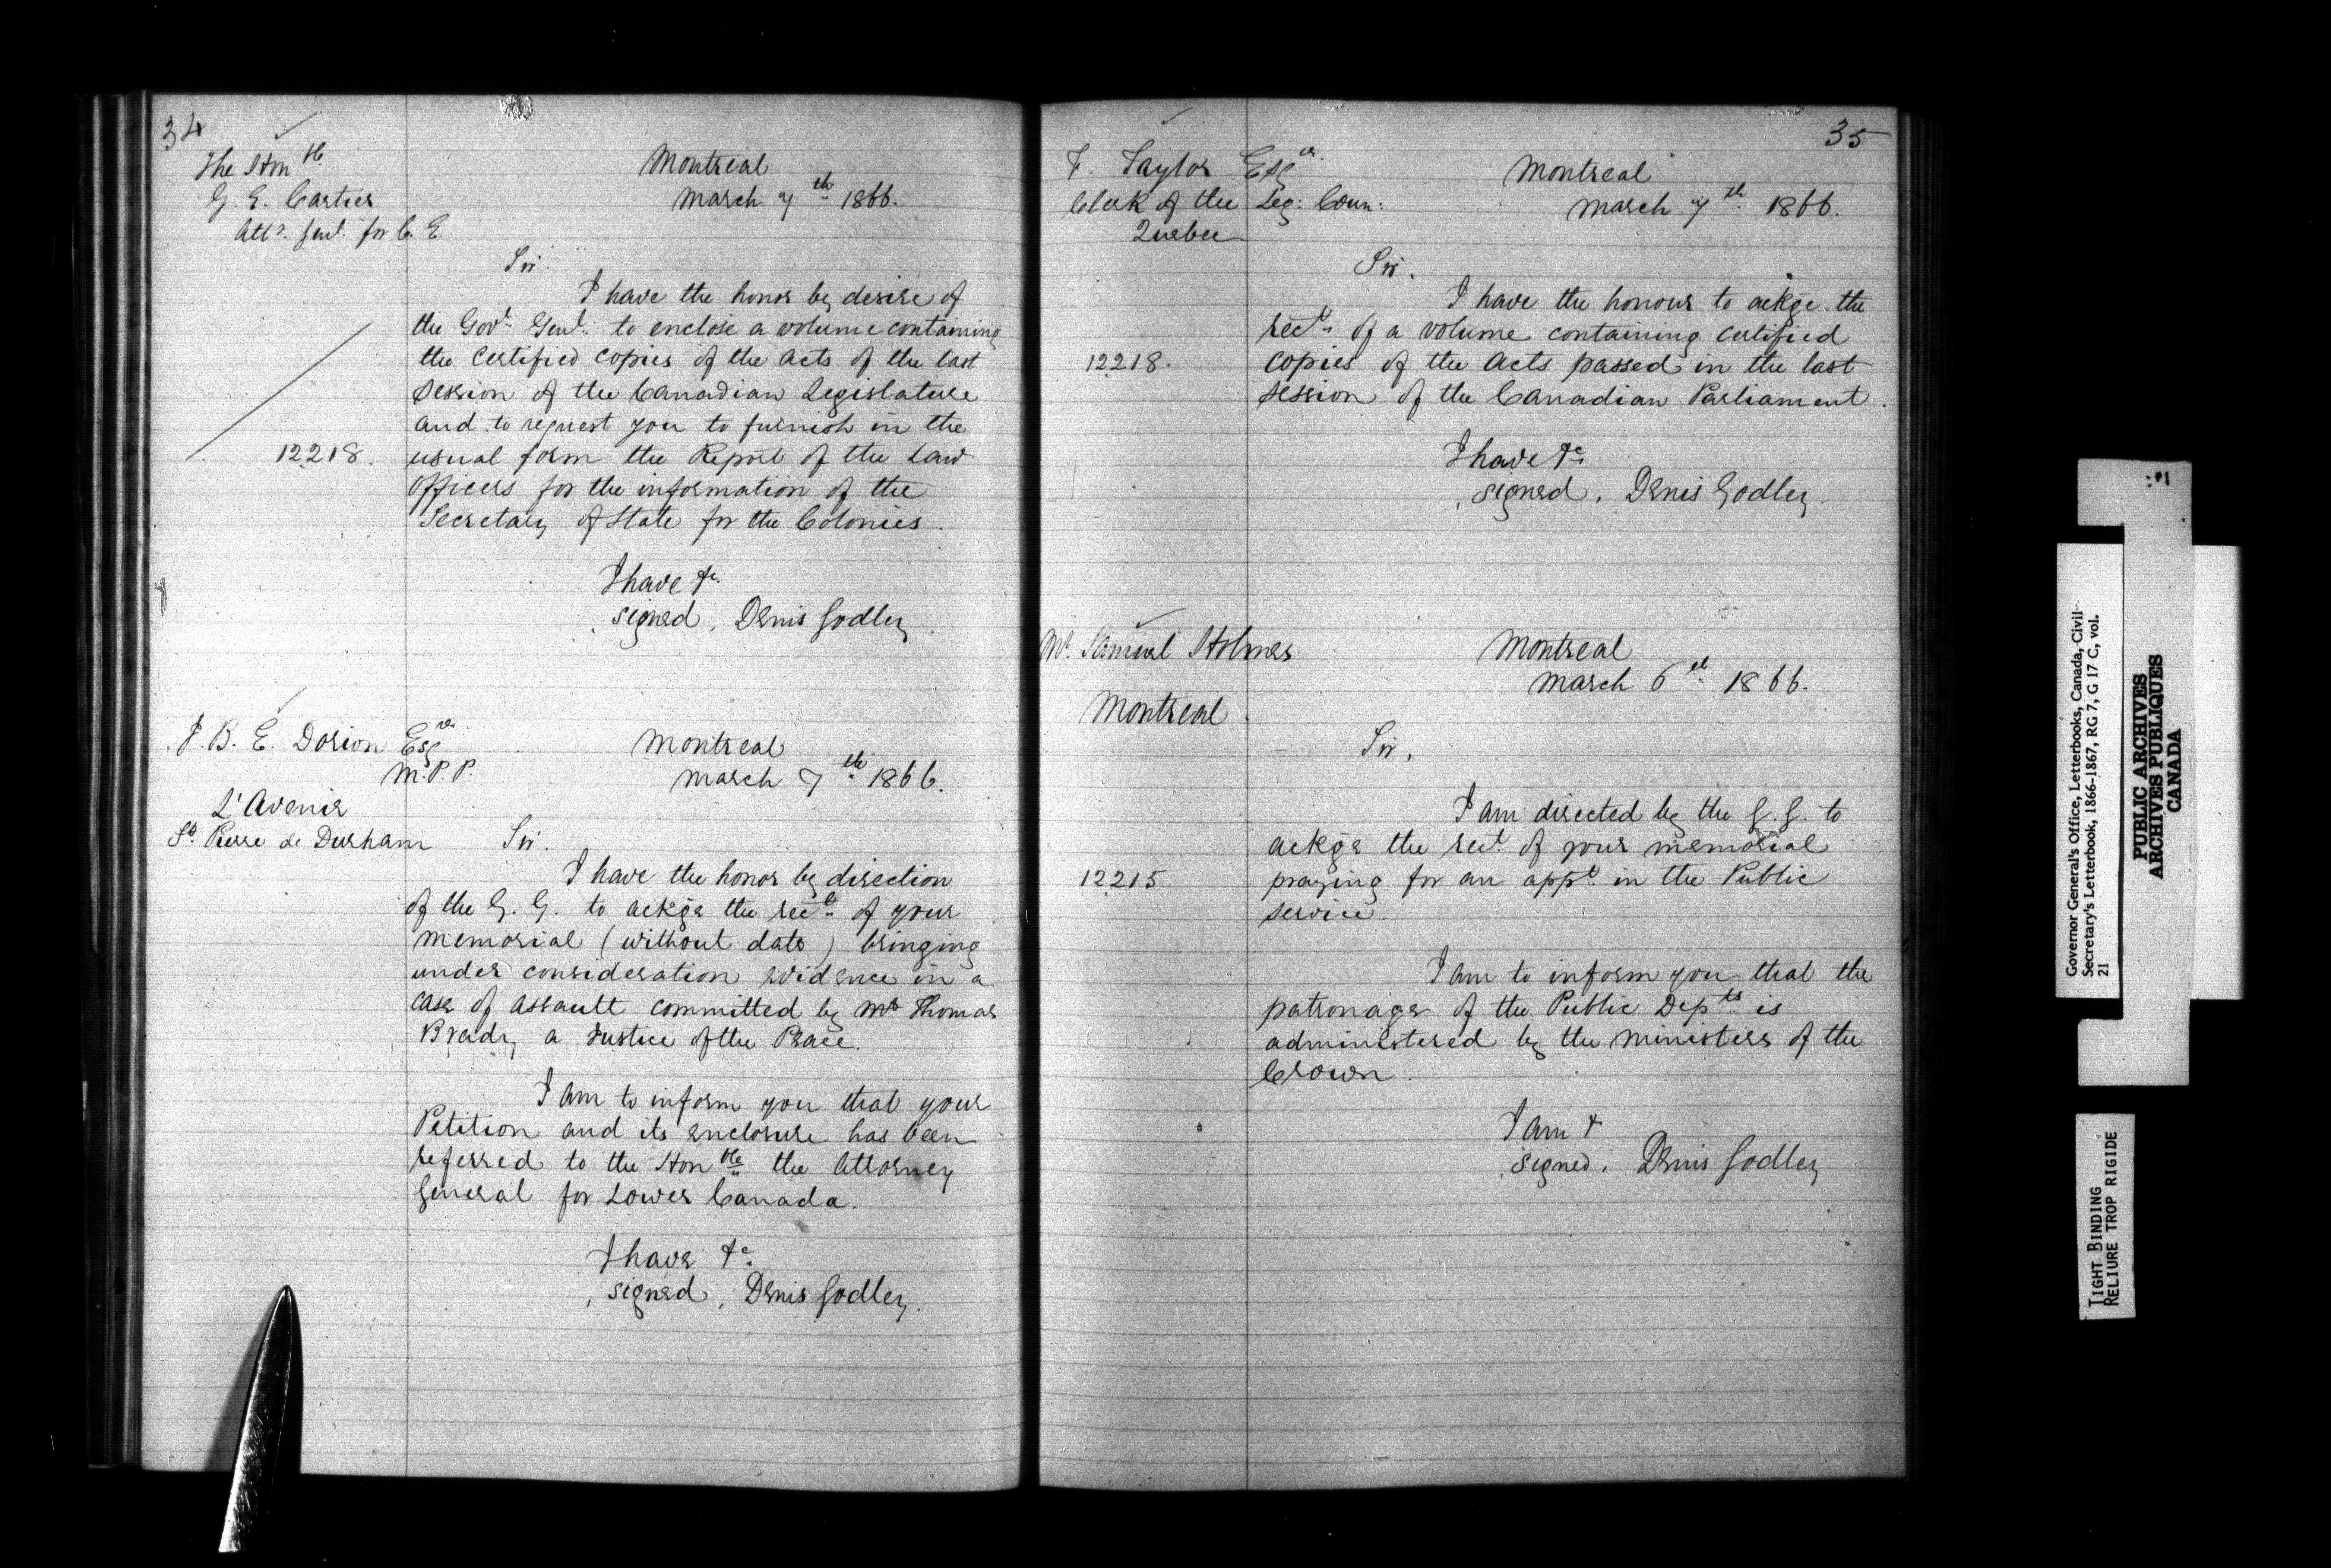 34
The Honble
G. E. Cartier
Atty. Genl. for C. E.
Montreal
March 7th 1866.
Sir.
I have the honor by desire of
the Govr. Genl. to enclose a volume containing
the certified copies of the acts of the last
session of the Canadian Legislature
and to request you to furnish in the
12218.
usual form the Report of the Law
Officers for the information of the
Secretary of State for the Colonies.
I have &c.
signed, Denis Godley
J. B. E. Dorion Esqre.
M.P.P.
L'Avenir
St. Pierre de Durham
Montreal
March 7th 1866.
Sir.
I have the honor by direction
of the G. G. to ackge the rect. of your
memorial (without date) bringing
under consideration evidence in a
case of assault committed by Mr Thomas
Brady a Justice of the Peace.
I am to inform you that your
Petition and its enclosure has been
referred to the Honble the Attorney
General for Lower Canada.
I have &c.
signed, Denis Godley.
35
F. Taylor Esqr.
Clerk of the Leg: Coun:
Quebec
Montreal
March 7th 1866.
Sir.
I have the honour to ackge. the
rect. of a volume containing certified
12218.
copies of the acts passed in the last
session of the Canadian Parliament.
I have &c.
signed, Denis Godley.
Mr. Samuel Holmes
Montreal.
Montreal
March 6th 1866.
Sir,
I am directed by the G. G. to
ackge the rect. of your memorial
12215
praying for an appt. in the Public
service.
I am to inform you that the
patronage of the Public Depts. is
administered by the ministers of the
Crown.
I am &
signed. Denis Godley
Governor General's Office, Letterbooks, Canada, Civil
Secretary's Letterbook, 1866-1867, RG 7, G 17 C, vol.
21
PUBLIC ARCHIVES
ARCHIVES PUBLIQUES
CANADA
TIGHT BINDING
RELIURE TROP RIGIDE